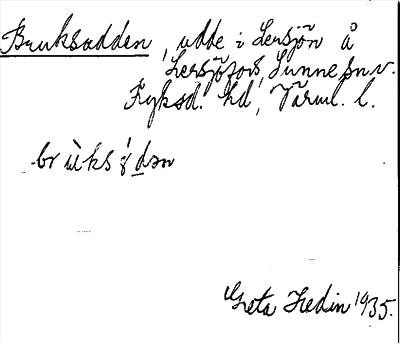 Bruksudden, udde i Lersjön å
Lersjöfors, Sunne sn.v.
Fryksd. hd, Värml. l.
brùksị̀dən
Greta Hedin 1935.